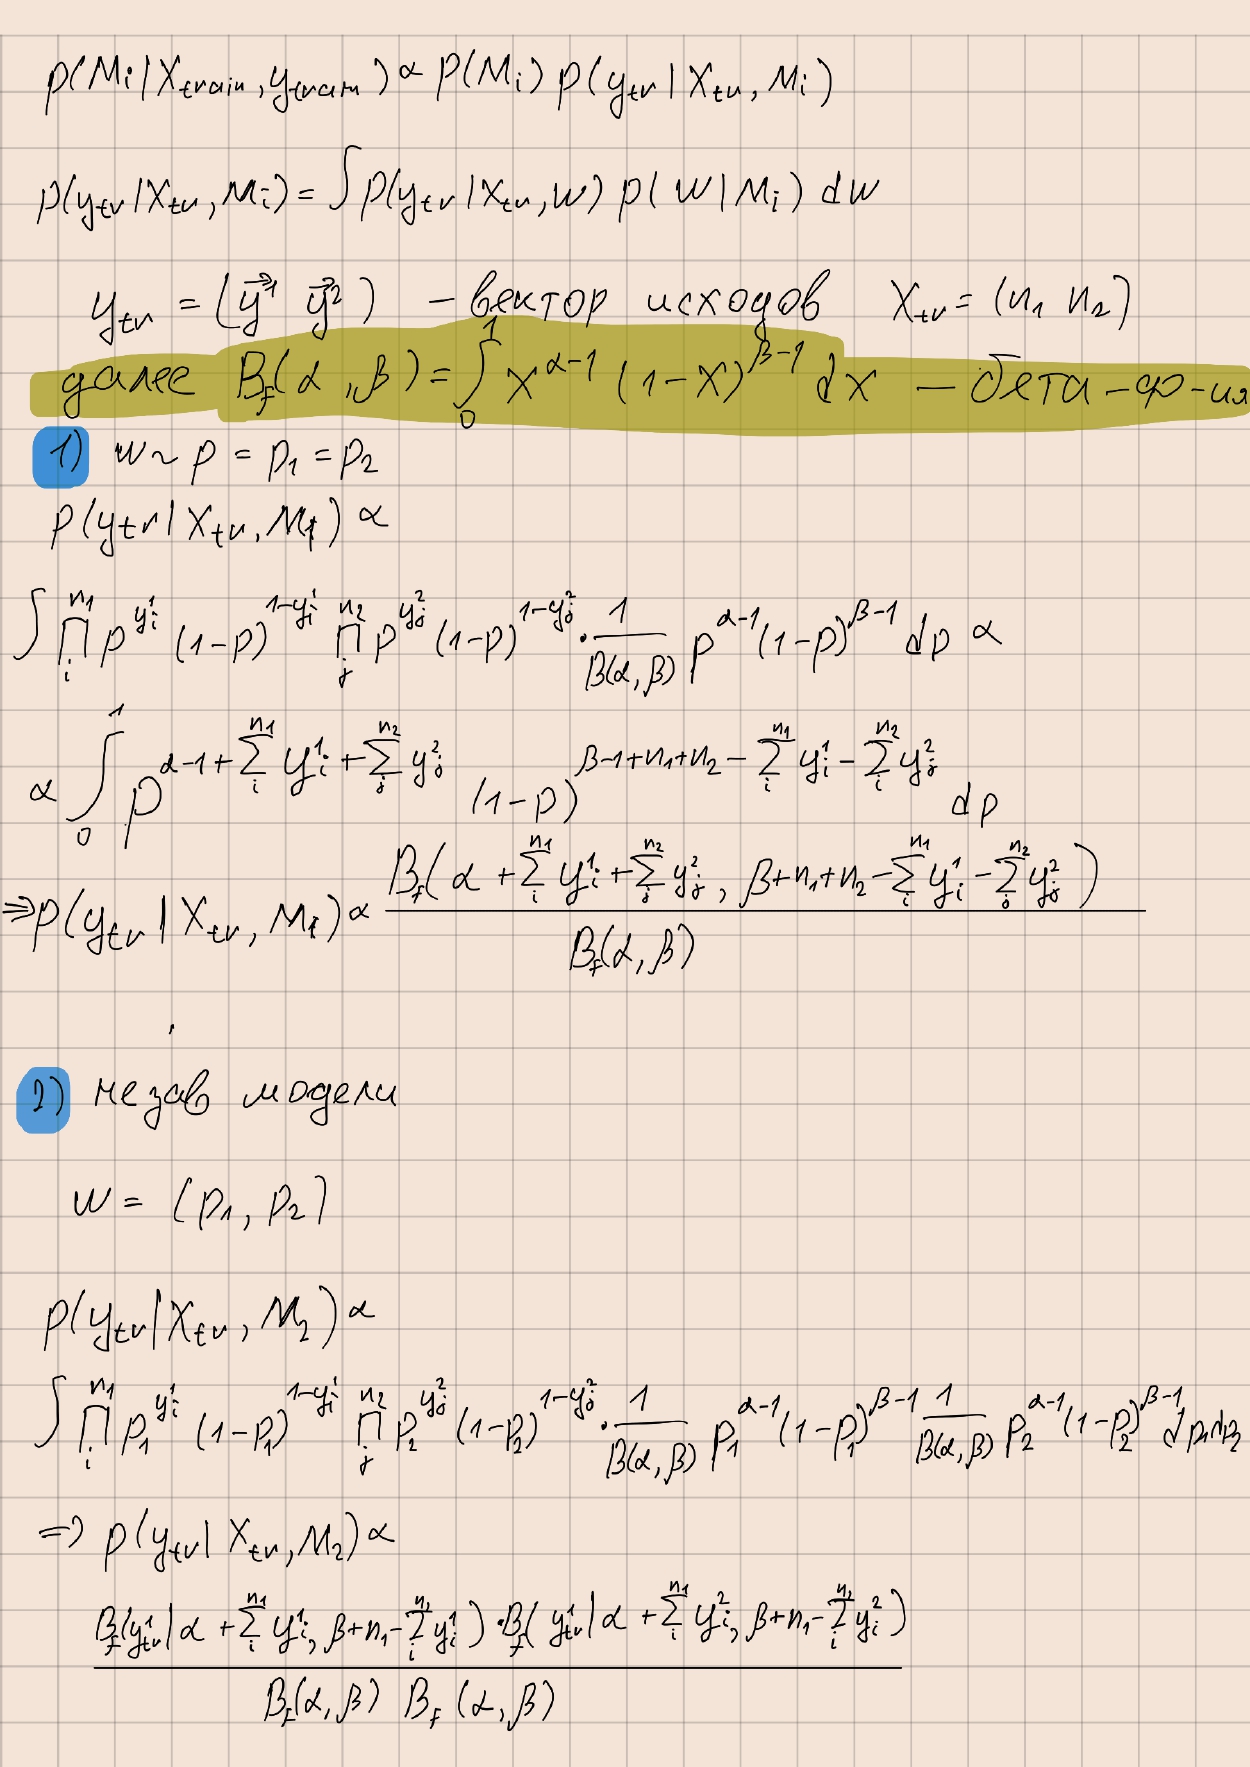 p(Mi|Xtrain, ytrain) ∝ p(Mi) p(ytr|Xtr, Mi)
p(ytr|Xtr, Mi) = ∫ p(ytr|Xtr, w) p(w|Mi) dw
ytr = (y⃗¹ y⃗²) - вектор исходов Xtr = (n₁ n₂)
далее B_f(α, β) = ∫₀¹ x^(α-1) (1-x)^(β-1) dx — бета-ф-ия
1) w ~ p = p₁ = p₂
p(ytr|Xtr, M₁) ∝
∫ ∏_i^(n₁) p^(y_i¹) (1-p)^(1-y_i¹) ∏_j^(n₂) p^(y_j²) (1-p)^(1-y_j²) · 1/B(α, β) p^(α-1) (1-p)^(β-1) dp ∝
∝ ∫₀¹ p^(α-1+∑_i^(n₁) y_i¹+∑_j^(n₂) y_j²) (1-p)^(β-1+n₁+n₂-∑_i^(n₁) y_i¹-∑_i^(n₂) y_j²) dp
⇒ p(ytr|Xtr, M₁) ∝ B_f(α + ∑_i^(n₁) y_i¹ + ∑_j^(n₂) y_j², β+n₁+n₂-∑_i^(n₁) y_i¹-∑_j^(n₂) y_j²) / B_f(α, β)
2) незав модели
w = (p₁, p₂)
p(ytr|Xtr, M₂) ∝
∫ ∏_i^(n₁) p₁^(y_i¹) (1-p₁)^(1-y_i¹) ∏_j^(n₂) p₂^(y_j²) (1-p₂)^(1-y_j²) · 1/B(α, β) p₁^(α-1) (1-p₁)^(β-1) 1/B(α, β) p₂^(α-1) (1-p₂)^(β-1) dp₁dp₂
⇒ p(ytr|Xtr, M₂) ∝
B_f(y¹tr|α + ∑_i^(n₁) y_i¹, β+n₁-∑_i^(n₁) y_i¹) · B_f(y¹tr|α + ∑_i^(n₁) y_i², β+n₁-∑_i^(n₁) y_i²)
B_f(α, β) B_f(α, β)